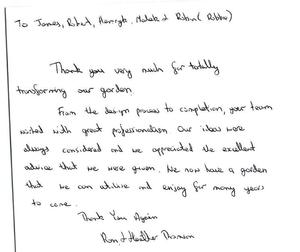 To James, Robert, & Robin (Robbo)
Thank you very much for totally
transforming our garden.
From the design process to completion, your team
worked with great professionalism. Our ideas were
always considered and we appreciated the excellent
advice that we were given. We now have a garden
that we can utilise and enjoy for many years
to come.
Thank You Again
Ron & Heather